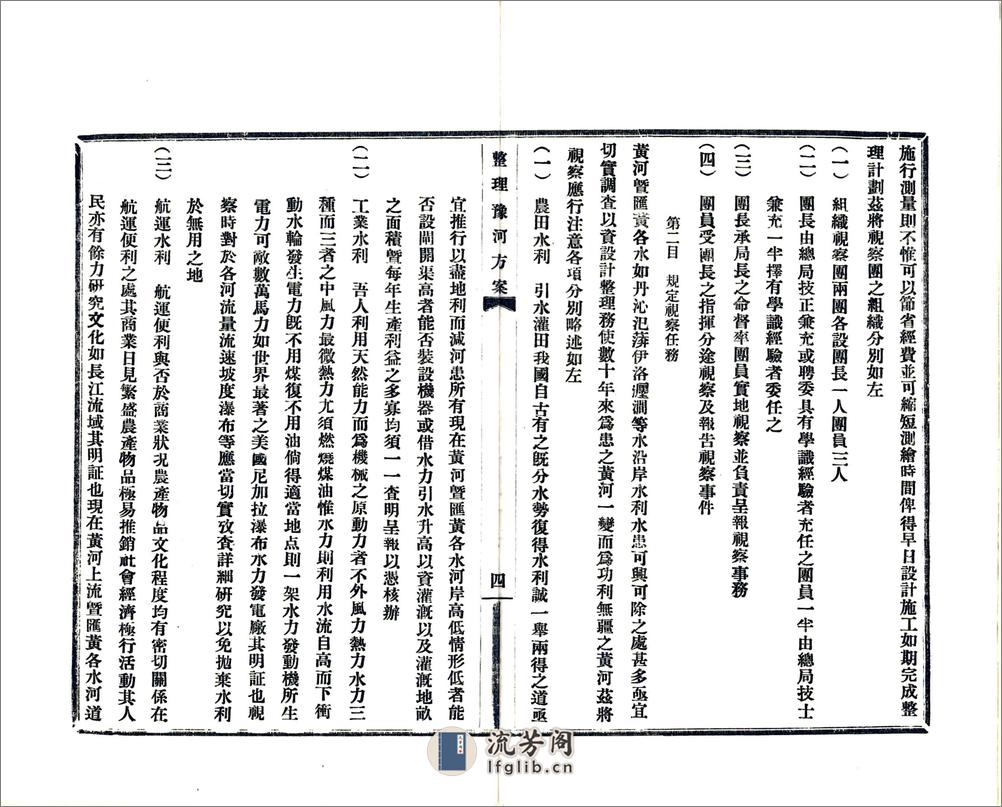 施行測量則不惟可以節省經費並可縮短測繪時間俾得早日設計施工如期完成整
理計劃茲將視察團之組織分別如左
(一) 組織視察團兩團各設團長一人團員三人
(二) 團長由總局技正兼充或聘委具有學識經驗者充任之團員一半由總局技士
兼充一半擇有學識經驗者委任之
(三) 團長承局長之命督率團員實地視察並負責呈報視察事務
(四) 團員受團長之指揮分途視察及報告視察事件
第二目 規定視察任務
黃河暨匯黃各水如丹沁汜漭伊洛瀍澗等水沿岸水利水患可興可除之處甚多亟宜
切實調查以資設計整理務使數十年來為患之黃河一變而為功利無疆之黃河茲將
視察應行注意各項分別略述如左
(一) 農田水利 引水灌田我國自古有之既分水勢復得水利誠一舉兩得之道亟
整理豫河方案
四
宜推行以盡地利而減河患所有現在黃河暨匯黃各水河岸高低情形低者能
否設閘開渠高者能否裝設機器或借水力引水升高以資灌漑以及灌漑地畝
之面積暨每年生產利益之多寡均須一一查明呈報以憑核辦
(二) 工業水利 吾人利用天然能力而為機械之原動力者不外風力熱力水力三
種而三者之中風力最微熱力尤須燃燒煤油惟水力則利用水流自高而下衝
動水輪發生電力既不用煤復不用油倘得適當地点則一架水力發動機所生
電力可敵數萬馬力如世界最著之美國尼加拉瀑布水力發電廠其明証也視
察時對於各河流量流速坡度瀑布等應當切實攷查詳細研究以免拋棄水利
於無用之地
(三) 航運水利 航運便利與否於商業狀况農產物品文化程度均有密切關係在
航運便利之處其商業日見繁盛農產物品極易推銷社會經濟極行活動其人
民亦有餘力研究文化如長江流域其明証也現在黃河上流暨匯黃各水河道
流芳阁
lfglib.cn